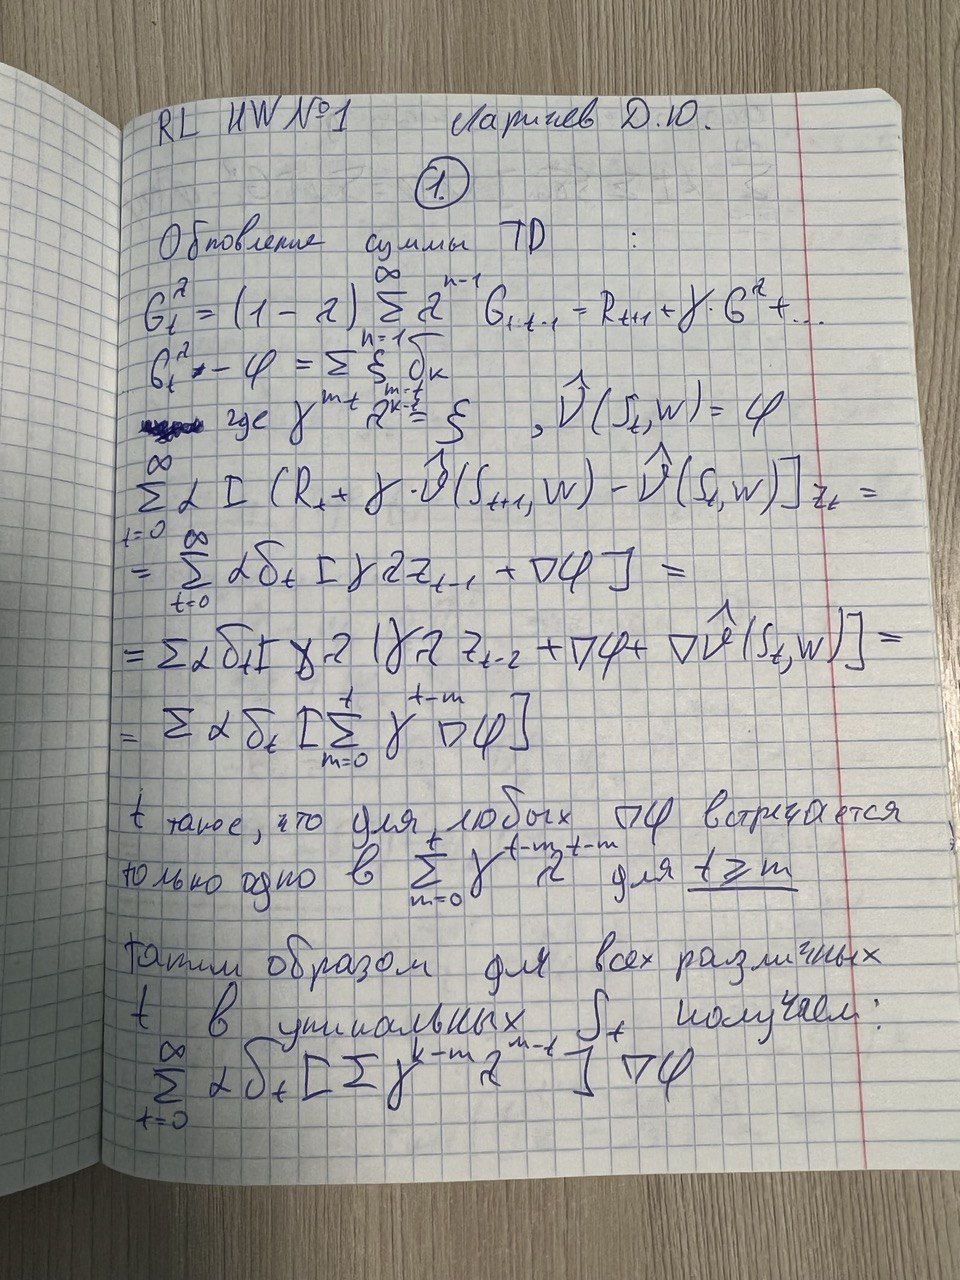 RL HW №1 Ларичев Д.Ю.
1.
Обновление суммы TD :
G_t^λ = (1 - λ) Σ_{n=1}^∞ λ^{n-1} G_{t:t-1} = R_{t+1} + γ·G^λ + ...
G_t^λ - φ = Σ ξ δ_k
где γ^{m-t} λ^{k-t} = ξ , v̂(S_t, w) = φ
Σ_{t=0}^∞ α [(R_t + γ·v̂(S_{t+1}, w) - v̂(S_t, w)] z_t =
= Σ_{t=0}^∞ α δ_t [γ λ z_{t-1} + ∇φ] =
= Σ α δ_t [γ λ (γ λ z_{t-2} + ∇φ + ∇v̂(S_t, w)] =
= Σ α δ_t [Σ_{m=0}^t γ^{t-m} ∇φ]
t такое, что для любых ∇φ встречается
только одно в Σ_{m=0}^t γ^{t-m} λ^{t-m} для t ⩾ m
таким образом для всех различных
t в уникальных S_t получаем:
Σ_{t=0}^∞ α δ_t [Σ γ^{k-m} λ^{m-t}] ∇φ